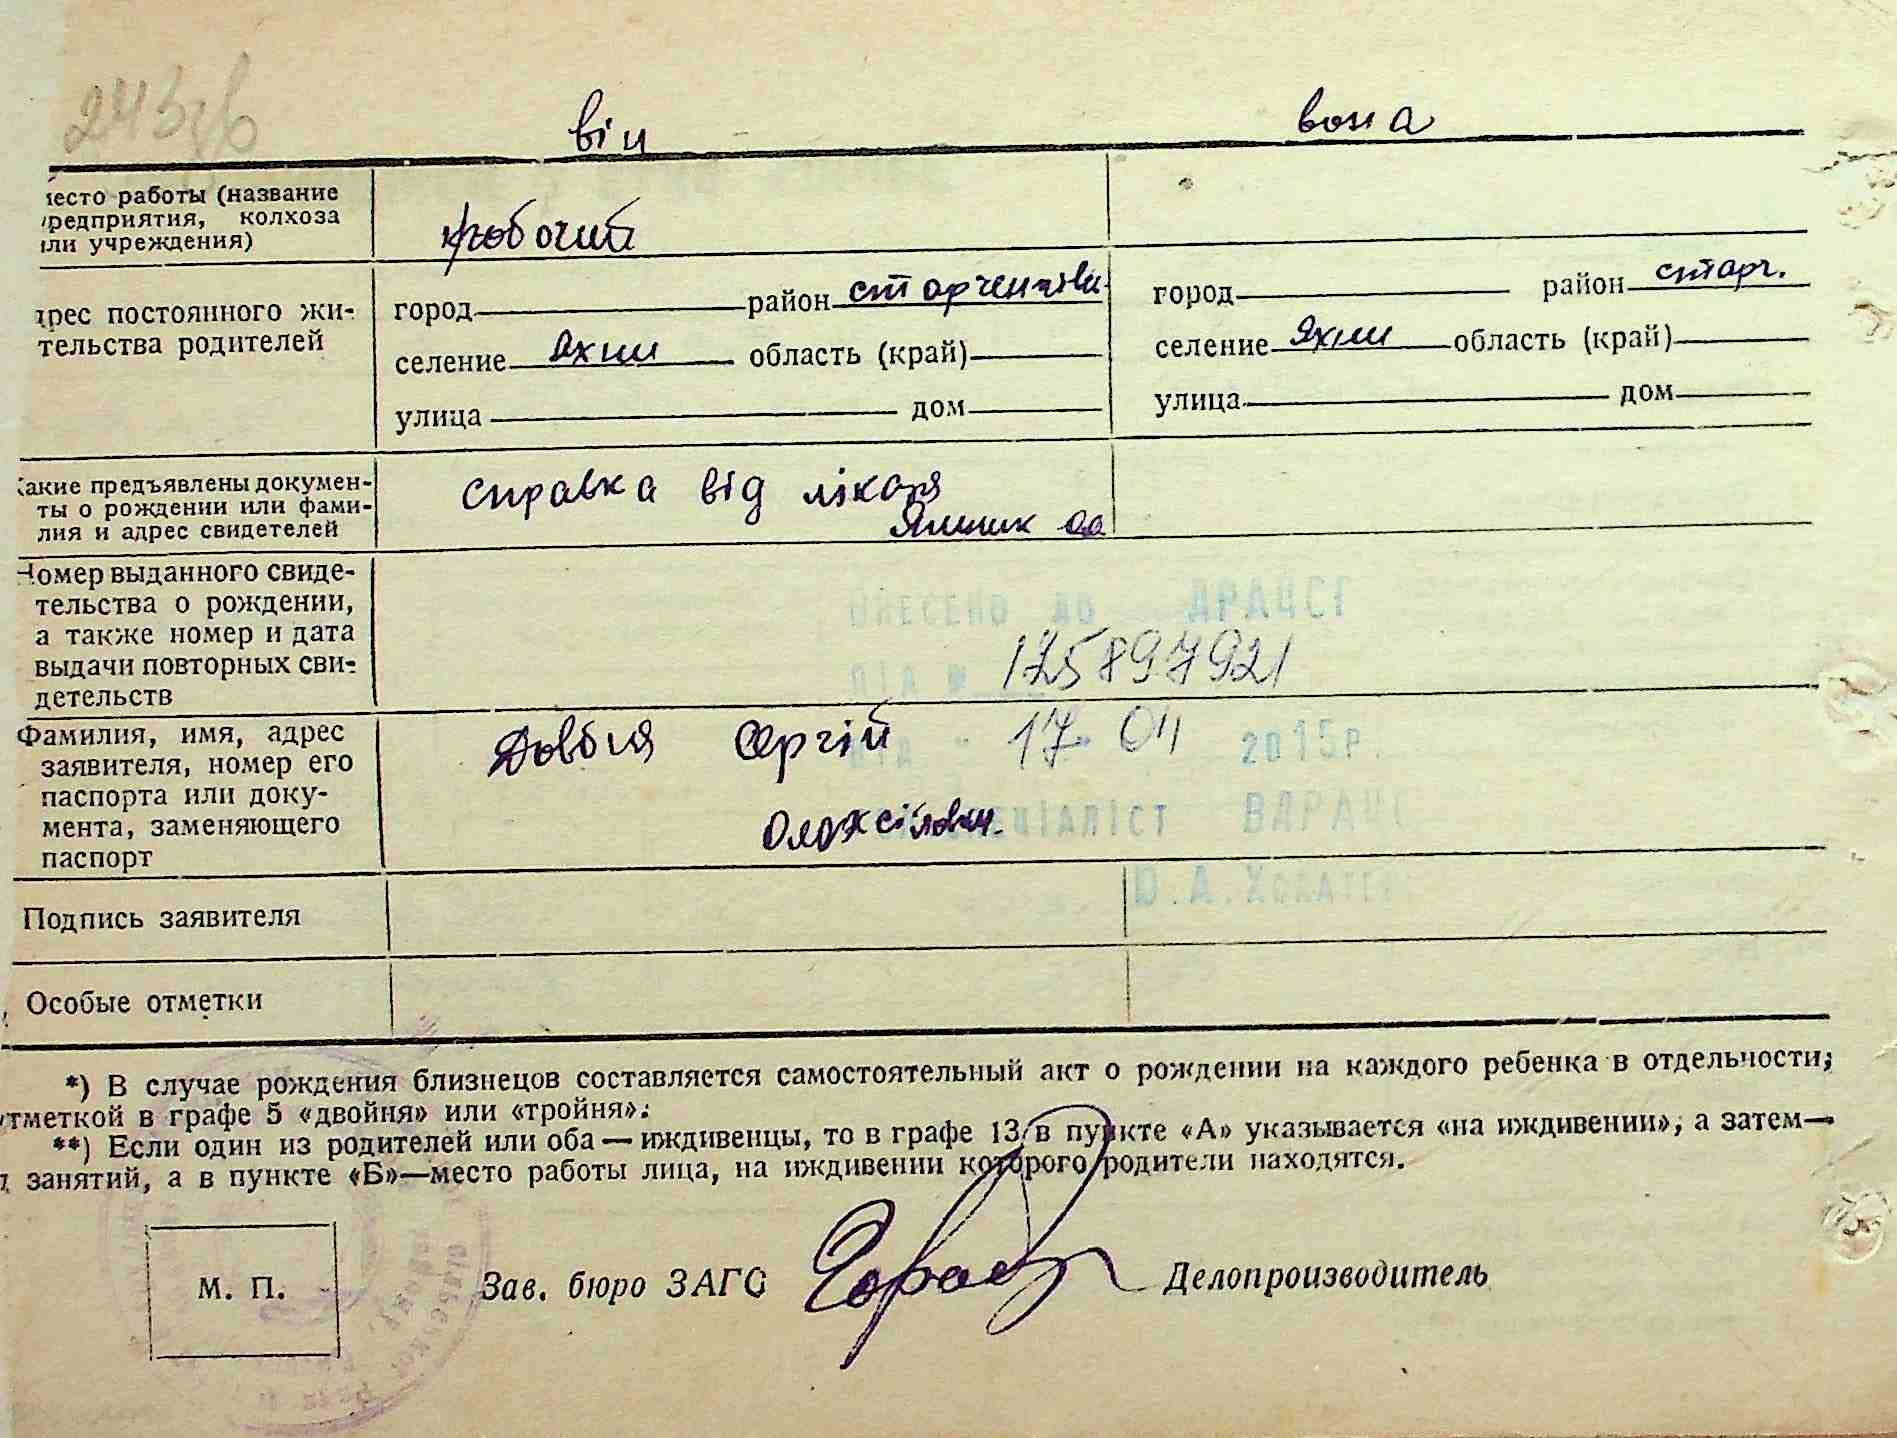 він вона
место работы (название
предприятия, колхоза
или учреждения)
робочий
адрес постоянного жи-
тельства родителей
город район
селение Яхни область (край)
улица дом
город район старч.
селение Яхни область (край)
улица дом
Какие предъявлены докумен-
ты о рождении или фами-
лия и адрес свидетелей
справка від лікаря
Номер выданного свиде-
тельства о рождении,
а также номер и дата
выдачи повторных сви-
детельств
ВНЕСЕНО ДО ДРАЦСГ
ПІД № 125897921
Фамилия, имя, адрес
заявителя, номер его
паспорта или доку-
мента, заменяющего
паспорт
Довбня Сергій
Олексійович
ВІД " 17 " 04 2015 р.
СПЕЦІАЛІСТ ВДРАЦС
Ю.А.
Подпись заявителя
Особые отметки
*) В случае рождения близнецов составляется самостоятельный акт о рождении на каждого ребенка в отдельности;
отметкой в графе 5 «двойня» или «тройня».
**) Если один из родителей или оба — иждивенцы, то в графе 13 в пункте «А» указывается «на иждивении», а затем—
занятий, а в пункте «Б»—место работы лица, на иждивении которого родители находятся.
М. П.
Зав. бюро ЗАГС Делопроизводитель